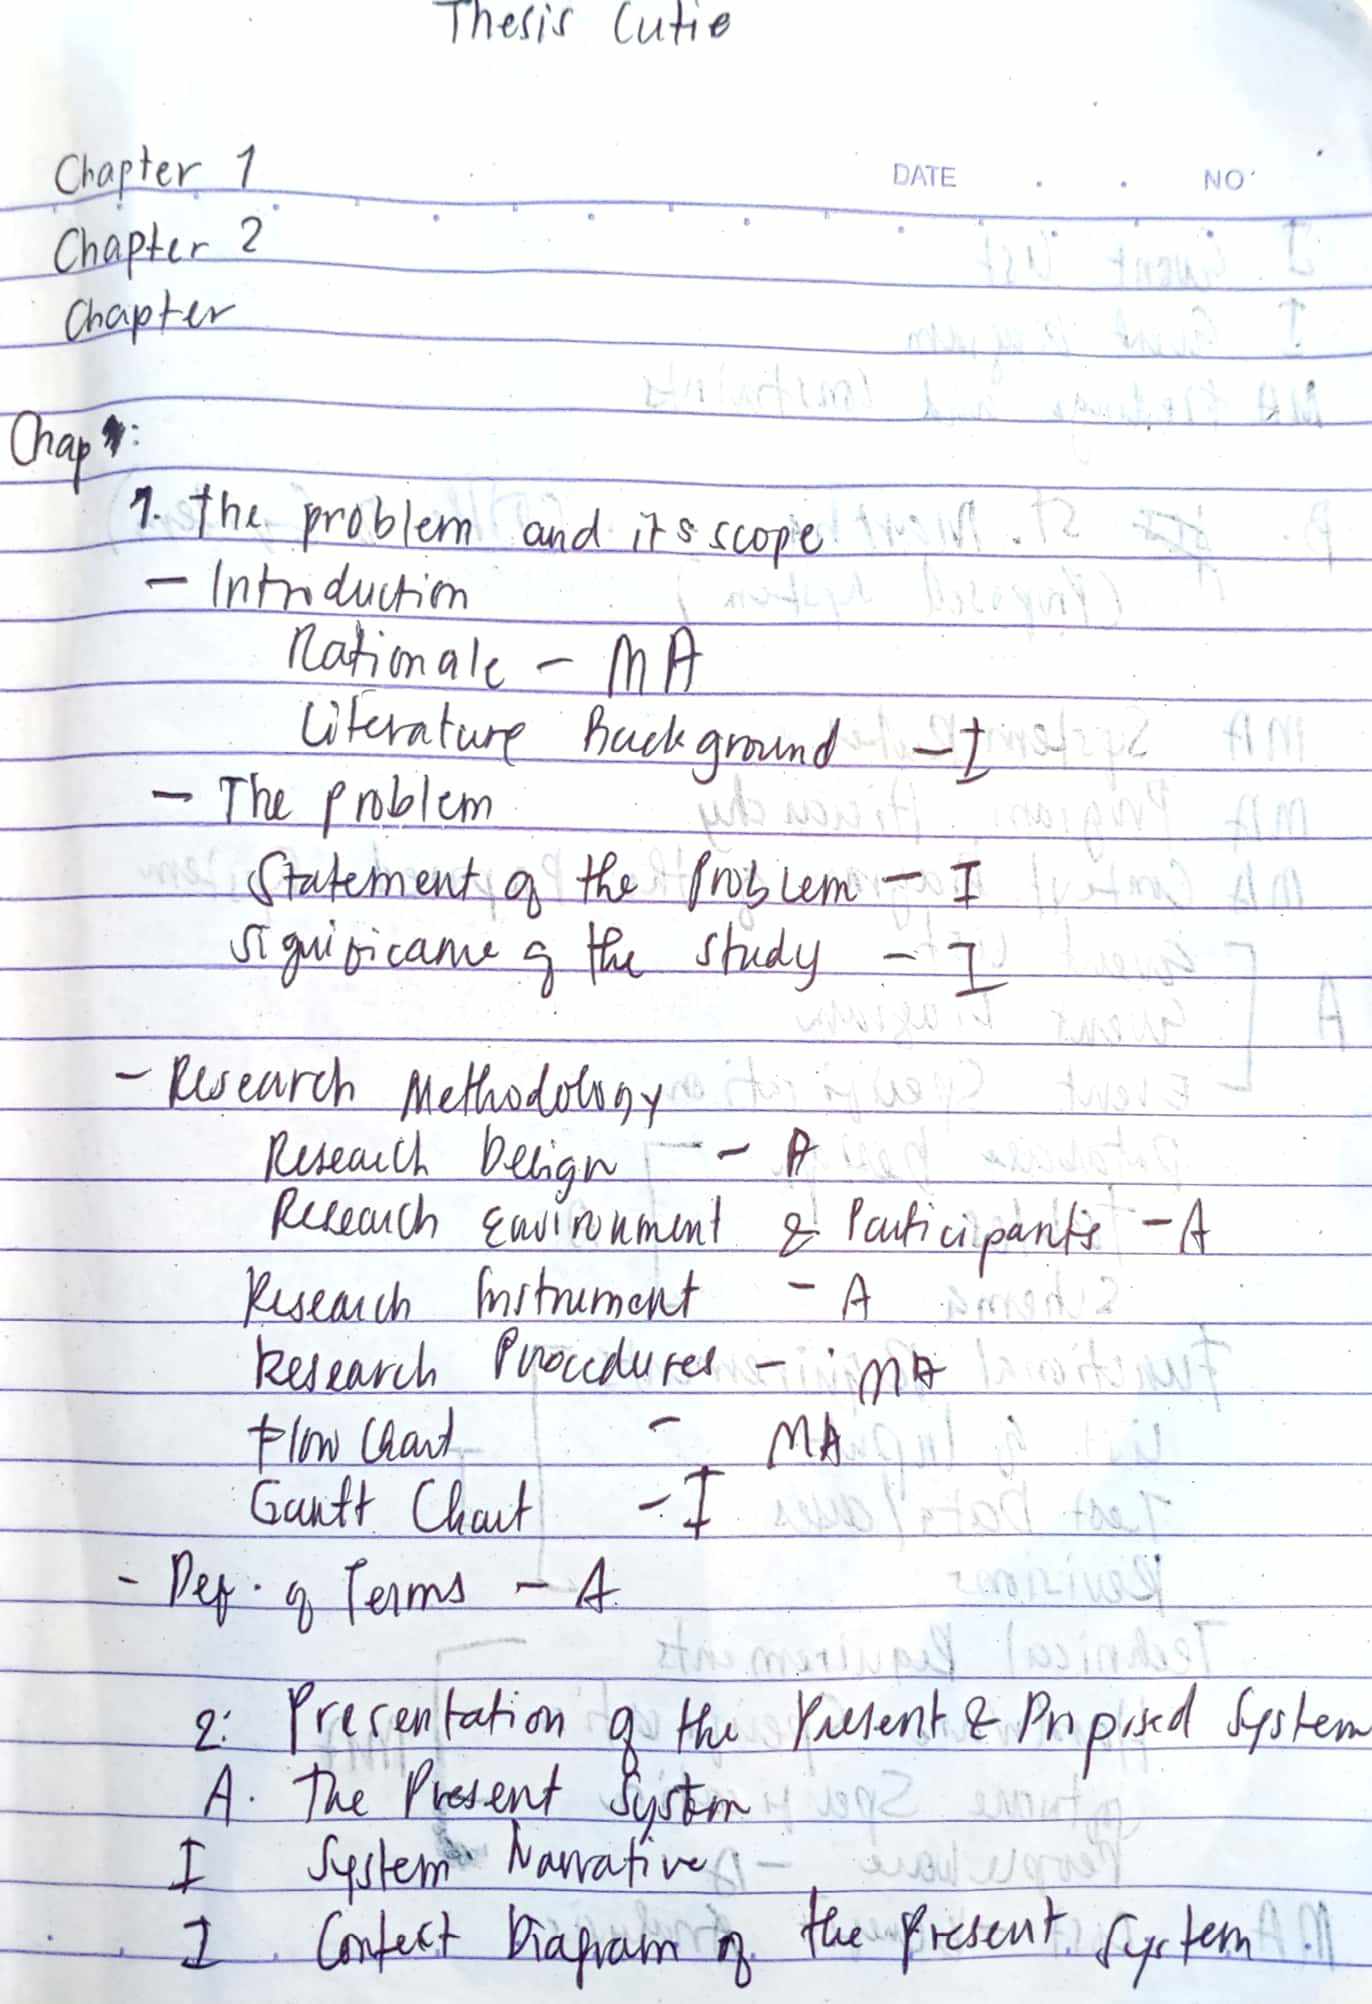 Thesis Cutie
Chapter 1
DATE . . NO.
Chapter 2
Chapter
Chap :
1. The problem and its scope
- Introduction
Rationale - MA
Literature Background - I
- The problem
Statement of the Problem - I
Significance of the study - I
- Research Methodology
Research Design - A
Research Environment & Participants - A
Research Instrument - A
Research Procedures - MA
Flow Chart - MA
Gantt Chart - I
- Def. of Terms - A
2. Presentation of the Present & Proposed System
A. The Present System
I System Narrative
I Context Diagram of the Present System